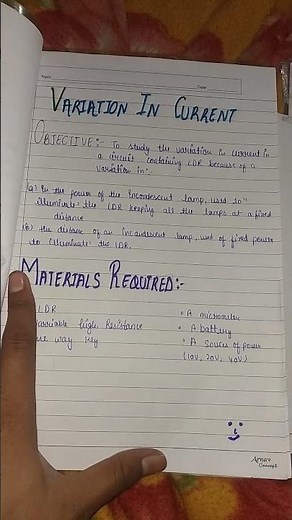 Date
VARIATION IN CURRENT
OBJECTIVE:- To study the variation in current in
a circuit containing LDR because of a
variation in:-
(a) In the power of the incandescent lamp, used to
illuminate the LDR keeping all the lamps at a fixed
distance
(b) the distance of an incandescent lamp, of fixed power
to illuminate the LDR.
MATERIALS REQUIRED:-
LDR
Variable high Resistance
one way key
• A
• A battery
• A source of power
(10V, 20V, 40V)